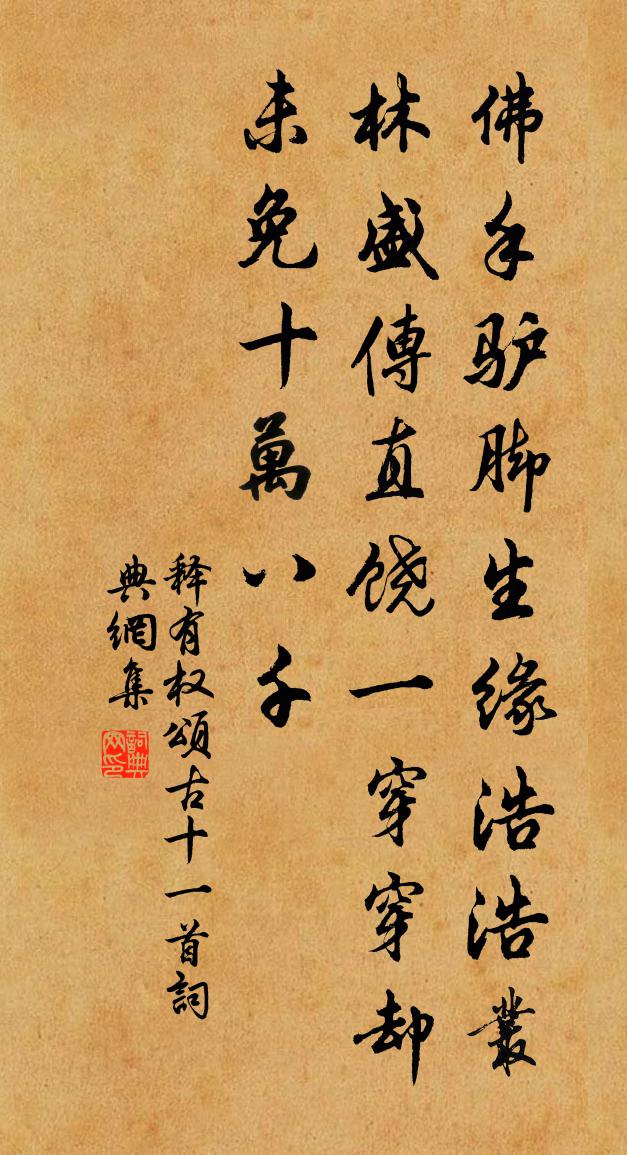 佛手驴脚生缘浩浩叢
林盛傳直饶一穿穿却
未免十萬八千
释有权頌古十一首詞
典網集
詞典網印